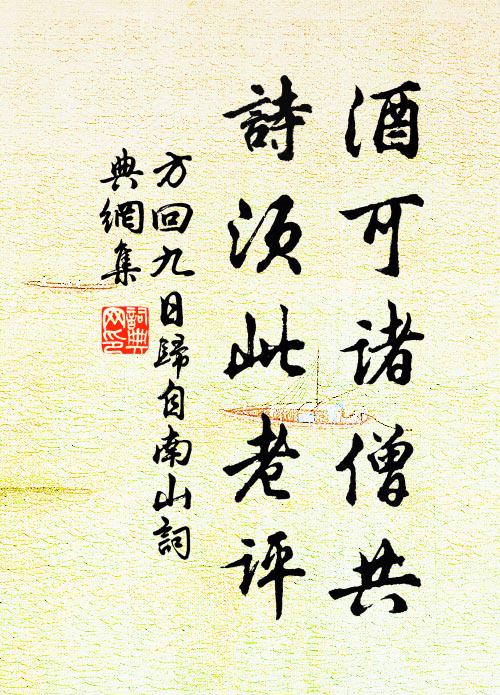 酒可诸僧共
詩须此老评
方回九日歸自南山詞
典網集
詞典
网印